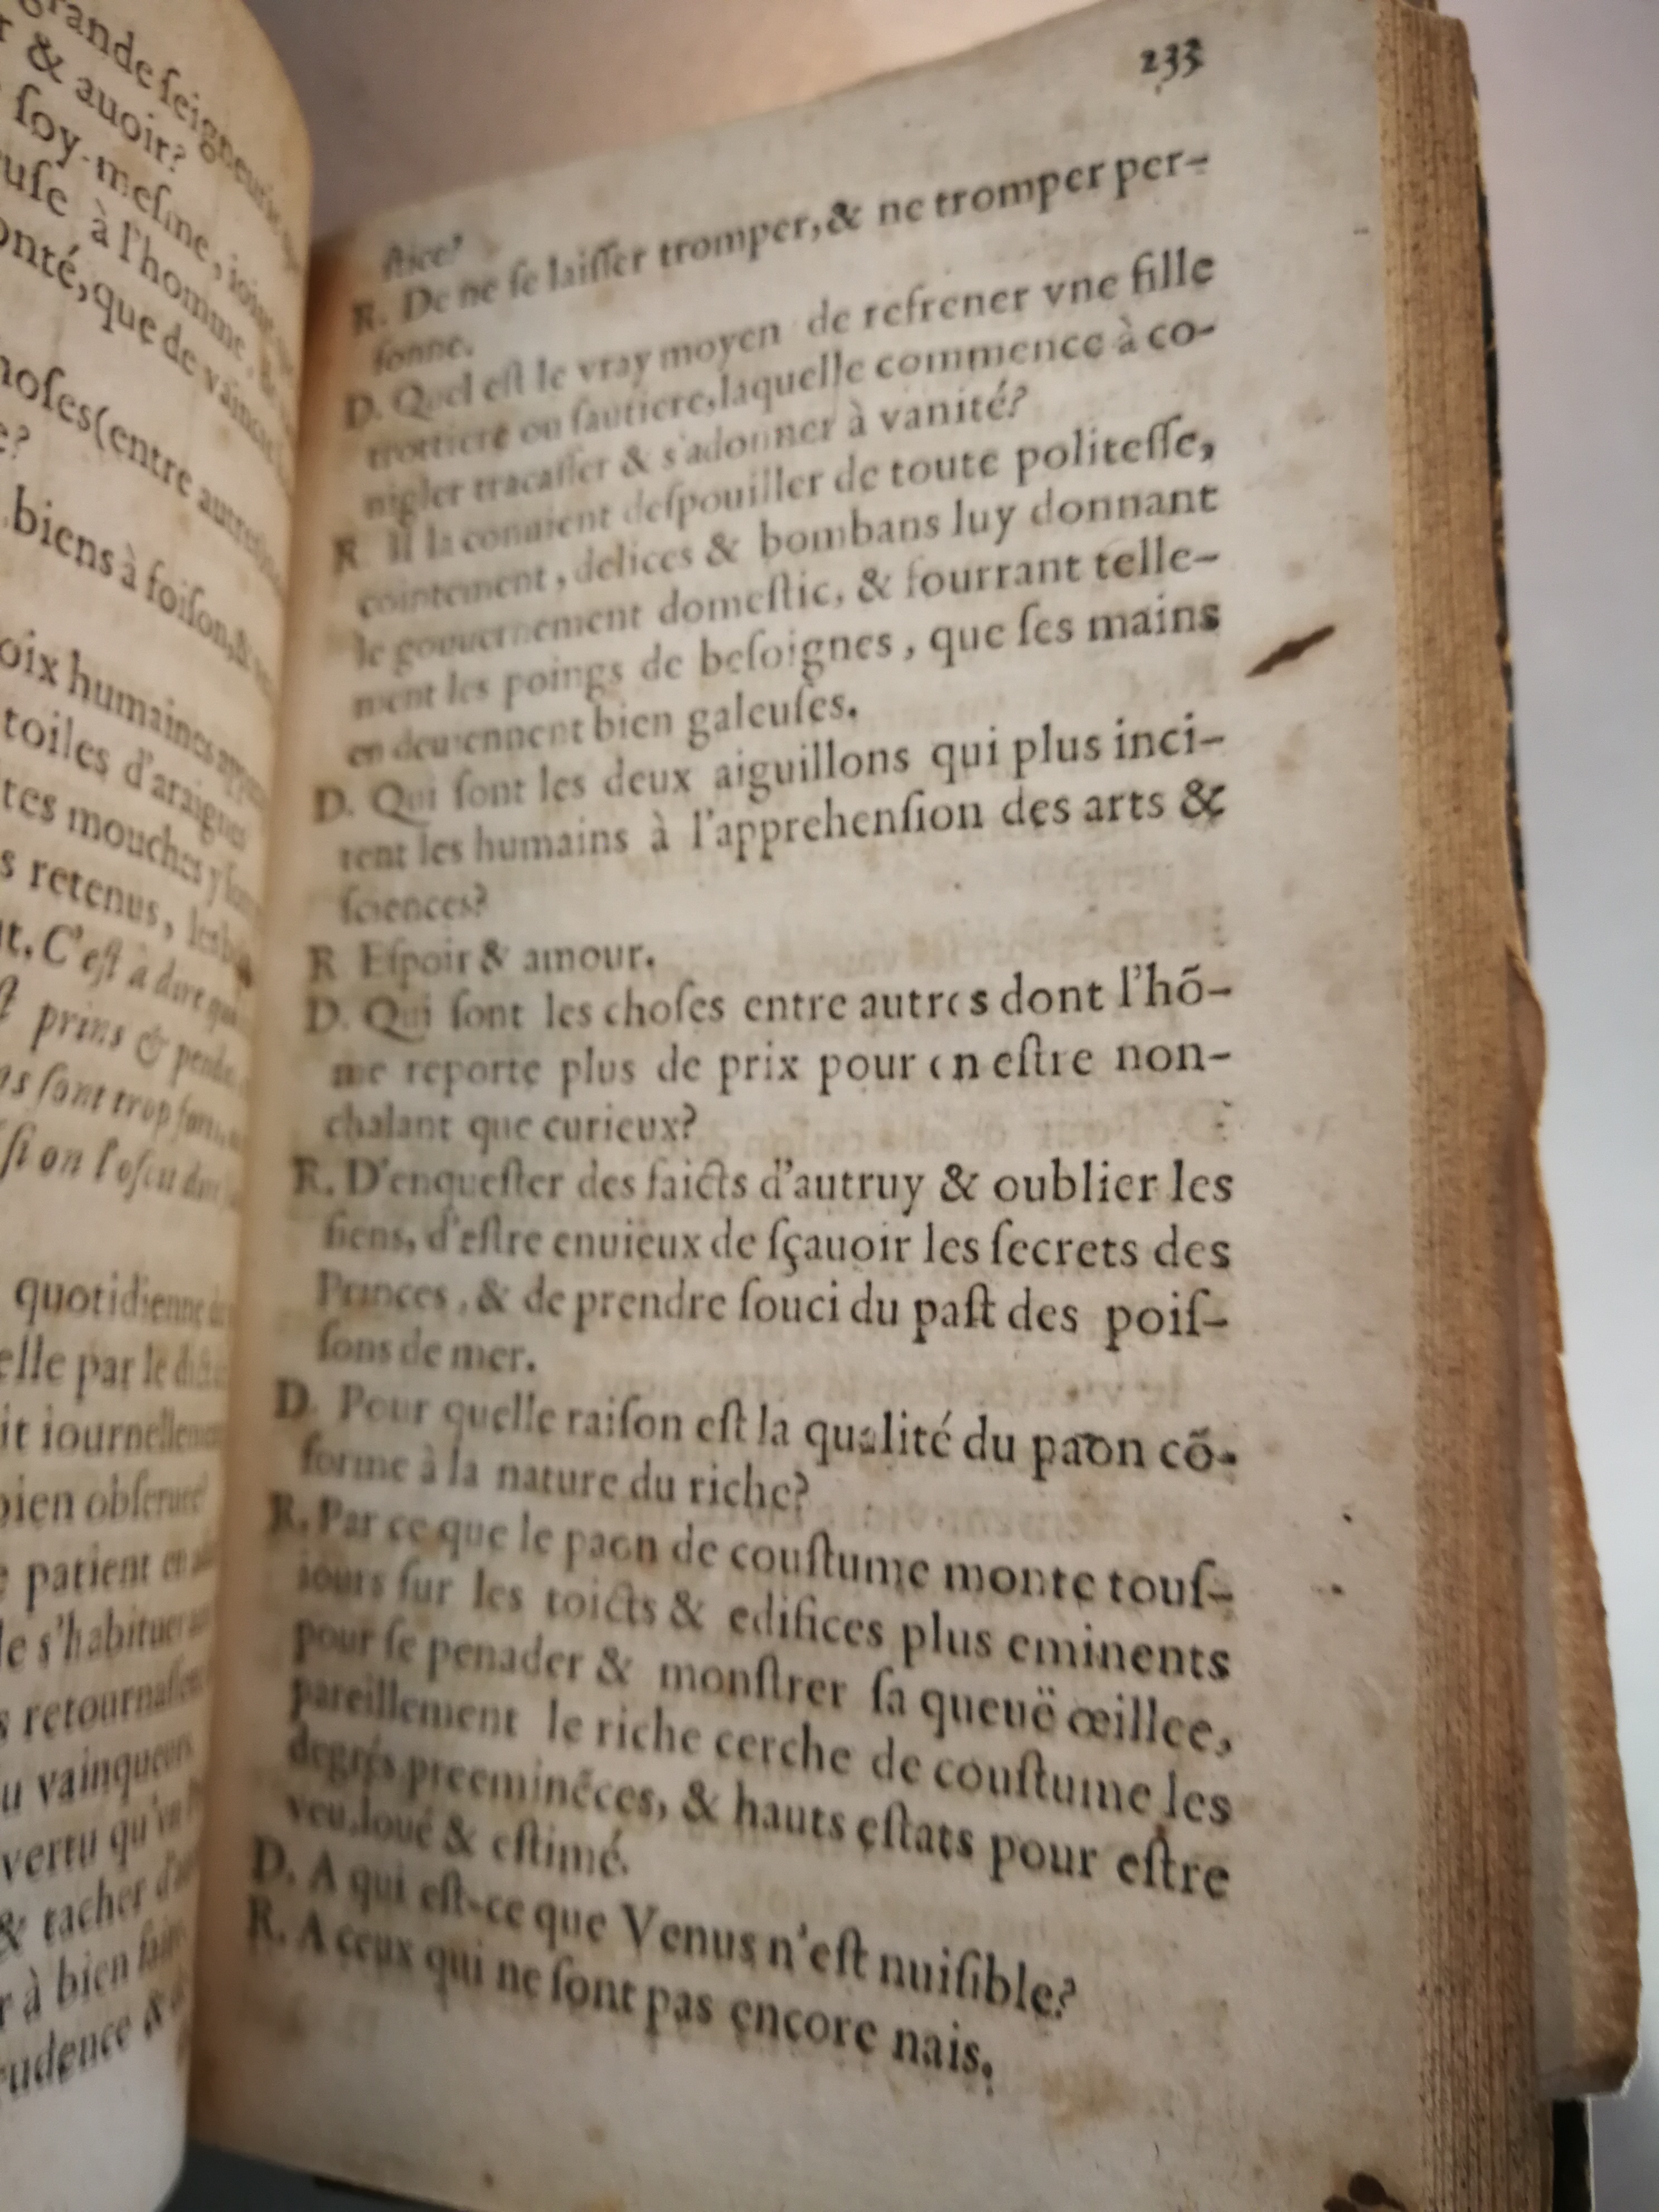 grande seigneurie
& auoir?
soy-mesme, ioint
use à l'homme,
onté, que de vaincre
hoses (entre autres
e?
biens à foison, &
oix humaines
toiles d'araignes
tes mouches y sont
s retenus, les
t. C'est à dire
prins & pendus
sont trop forts
si on l'osoit dire
quotidienne
elle par le
it iournellement
bien obserué
patient en
le s'habituer
s retournassent
u vainqueurs
vertu qu'vn
& tacher d'
r à bien faire
rudence &
233
stice?
R. De ne se laisser tromper, & ne tromper per-
sonne.
D. Quel est le vray moyen de refrener vne fille
trottiere ou sautiere, laquelle commence à co-
nigler tracasser & s'adonner à vanité?
R. Il la conuient despouiller de toute politesse,
cointement, delices & bombans luy donnant
le gouuernement domestic, & fourrant telle-
ment les poings de besoignes, que ses mains
en deuiennent bien galeuses.
D. Qui sont les deux aiguillons qui plus inci-
tent les humains à l'apprehension des arts &
sciences?
R Espoir & amour.
D. Qui sont les choses entre autres dont l'hõ-
me reporte plus de prix pour en estre non-
chalant que curieux?
R. D'enquester des faicts d'autruy & oublier les
siens, d'estre enuieux de sçauoir les secrets des
Princes, & de prendre souci du past des pois-
sons de mer.
D. Pour quelle raison est la qualité du paon cõ-
forme à la nature du riche?
R. Par ce que le paon de coustume monte tous-
iours sur les toicts & edifices plus eminents
pour se penader & monstrer sa queuë œillee,
pareillement le riche cerche de coustume les
degrés preeminẽces, & hauts estats pour estre
veu, loué & estimé.
D. A qui est-ce que Venus n'est nuisible?
R. A ceux qui ne sont pas encore nais.